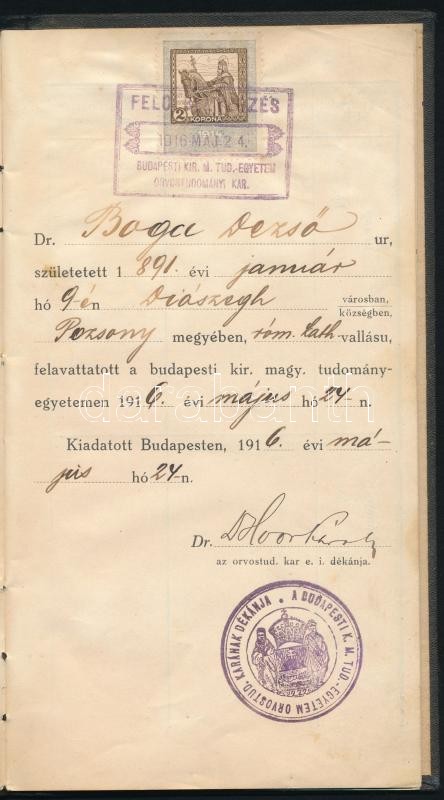 2 KORONA
1914
FELC ZÉS
1916 MÁJ. 24.
BUDAPESTI KIR. M. TUD.-EGYETEM
ORVOSTUDOMÁNYI KAR.
Dr. Boga Dezső ur,
születetett 1891. évi január
hó 9-én Diószegh városban, községben,
Pozsony megyében, róm. kath. vallásu,
felavattatott a budapesti kir. magy. tudomány-
egyetemen 1916. évi május hó 24-n.
Kiadatott Budapesten, 1916. évi má-
jus hó 24-n.
Dr.
az orvostud. kar e. i. dékánja.
A BUDAPESTI K. M. TUD.-EGYETEM ORVOSTUD. KARÁNAK DÉKÁNJA
darabanth